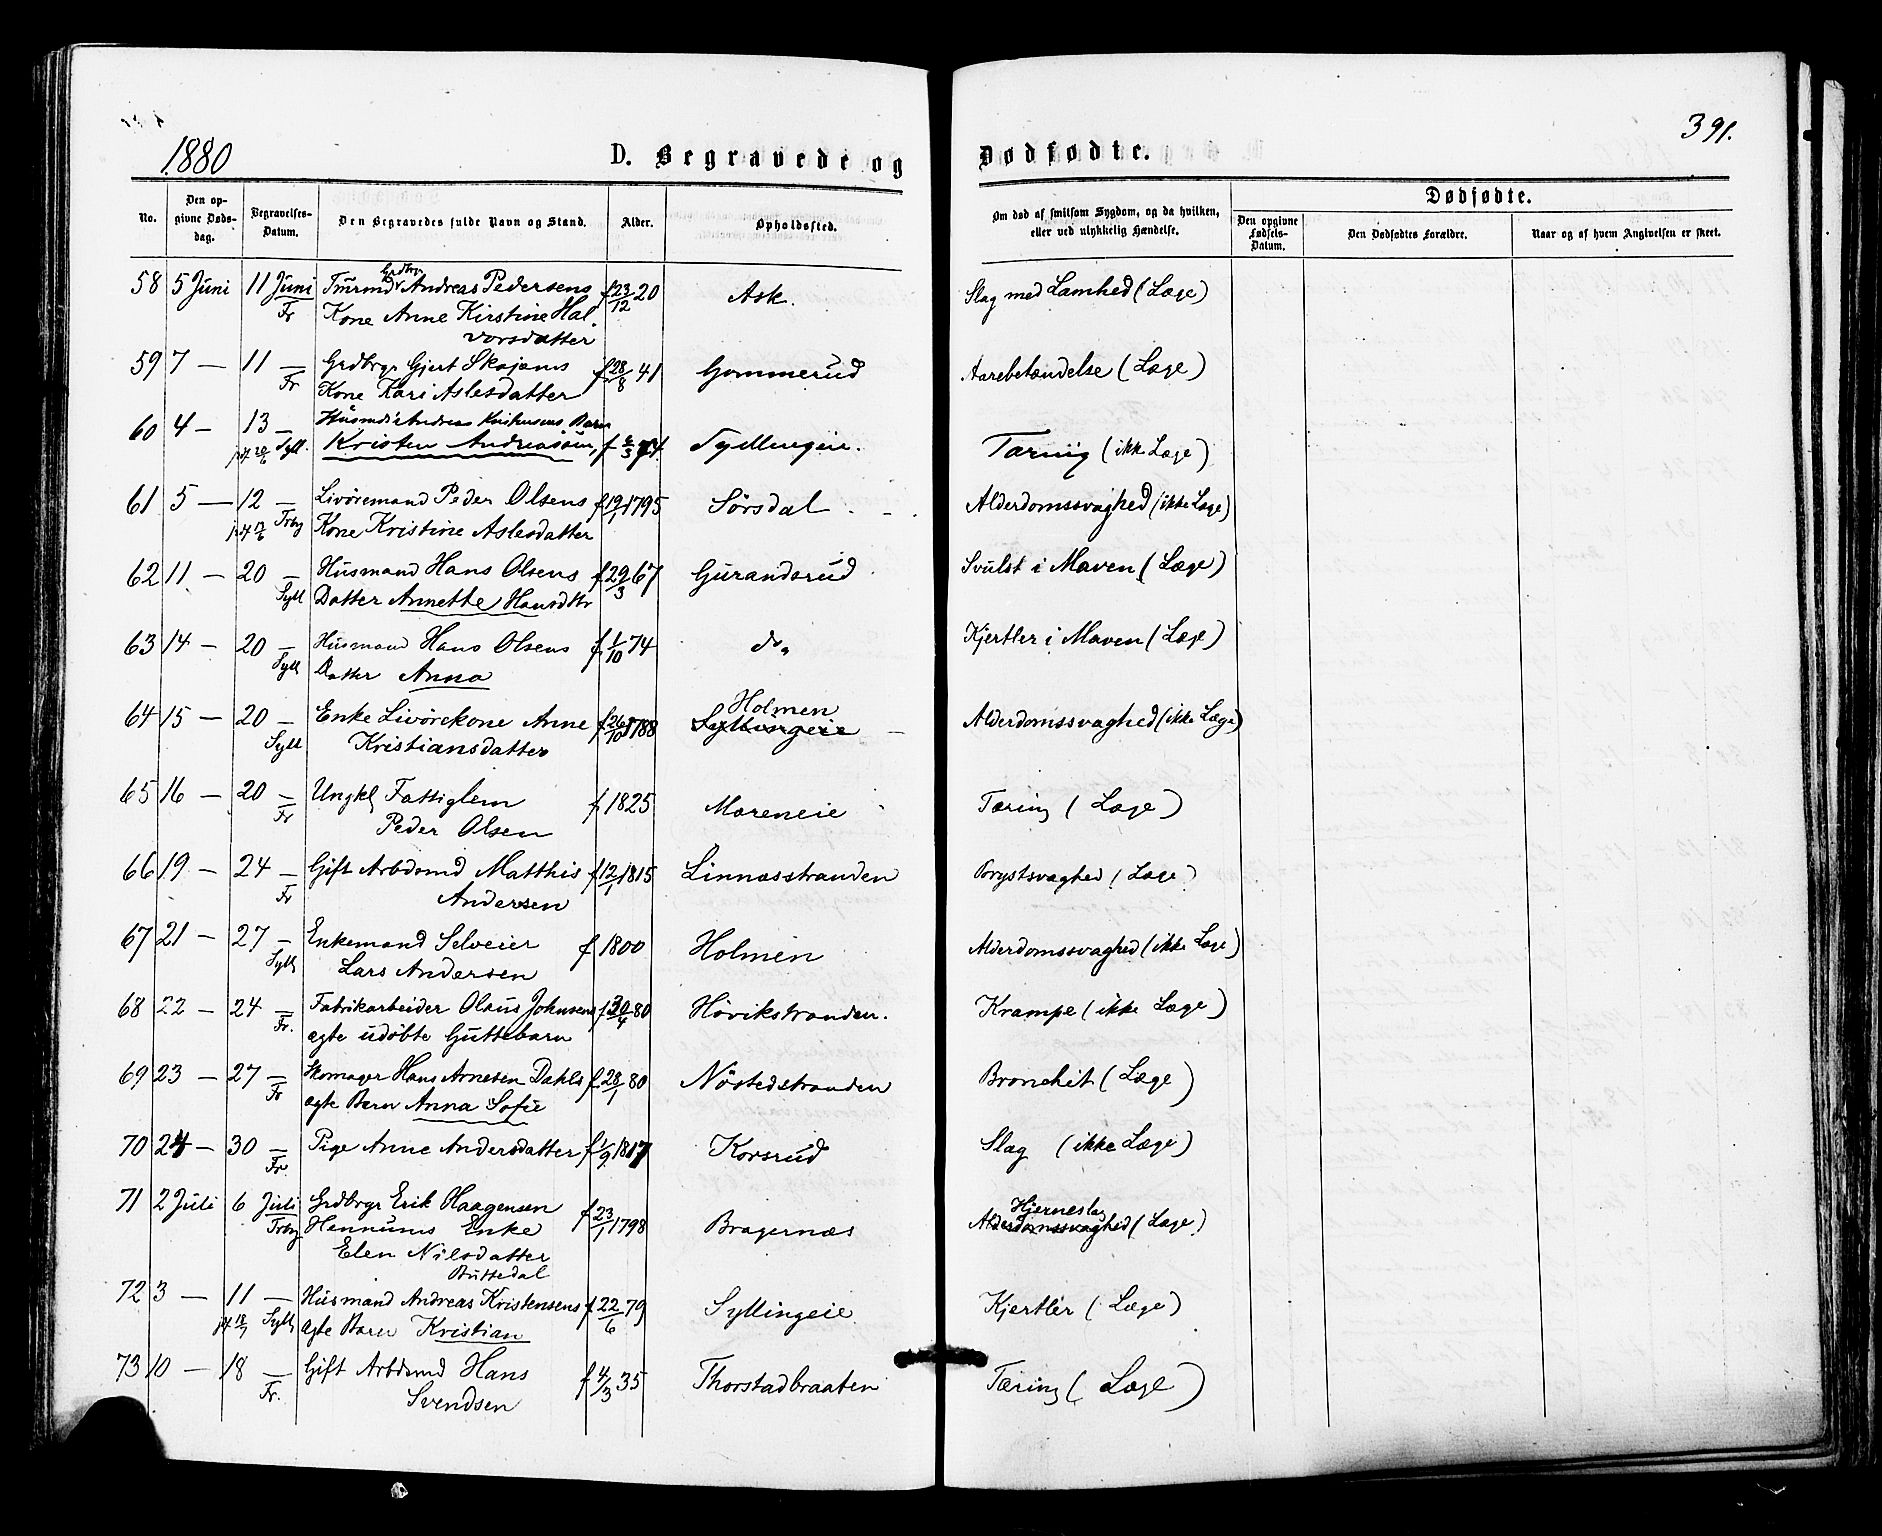 1880
D. Begravede og
Dødfødte.
391.
No.
Den op-
givne Døds-
dag.
Begravelses-
Datum.
Den Begravedes fulde Navn og Stand.
Alder.
Opholdssted.
Om død af smitsom Sygdom, og da hvilken,
eller ved ulykkelig Hændelse.
Dødfødte.
Den opgivne
Fødsels-
Datum.
Den Dødfødtes Forældre.
Naar og af hvem Angivelsen er skeet.
58 5 Juni 11 Juni Andreas Pedersens f 23/12 20 Ask. Slag med Lamhed (Læge)
Fr Kone Anne Kirstine Hal-
vorsdatter
59 7 — 11 — Grdbrgr Gjert Skajems f 28/8 41 Gommerud Aarebetændelse (Læge)
Fr Kone Kari Aslesdatter
60 4 — 13 — Husmd Andreas Kristensens Barn
jf 20/6 Syll. Kristen Andreassøn, f 74. Syllingeie. Tæring (ikke Læge)
61 5 — 12 — Livøremand Peder Olsens f 19/1 1795 Sörsdal Alderdomssvaghed (ikke Læge)
Frbg Kone Kristine Aslesdatter
62 11 — 20 — Husmand Hans Olsens f 29/3 67 Gurandsrud Svulst i Maven (Læge)
Syll Datter Annette Hansdtr
63 14 — 20 — Husmand Hans Olsens f 1/10 74 do Kjertler i Maven (Læge)
Syll Datter Anna
64 15 — 20 — Enke Livörekone Anne f 26/10 1788 Holmen Syllingeie Alderdomssvaghed (ikke Læge)
Syll Kristiansdatter
65 16 — 20 — Ungkl Fattiglem f 1825 Moreneie Tæring (Læge)
Fr Peder Olsen
66 19 — 24 — Gift Arbdsmd Matthis f 12/1 1815 Linnæsstranden Brystsvaghed (Læge)
Fr Andersen
67 21 — 27 — Enkemand Selveier f 1800 Holmen Alderdomssvaghed (ikke Læge)
Syll Lars Andersen
68 22 — 24 — Fabrikarbeider Olaus Johnsens f 30/4 80 Hövikstranden. Krampe (ikke Læge)
Fr. ægte udöbte Guttebarn
69 23 — 27 — Skomager Hans Arnesen Dahls f 28/1 80 Nöstedstranden Bronchit (Læge)
Fr ægte Barn Anna Sofie
70 24 — 30 — Pige Anne Andersdatter f 1/9 1817 Korsrud Slag (ikke Læge)
Fr
71 2 Juli 6 Juli Grdbrgr Erik Haagensen f 23/1 1798 Bragernæs Hjerneslag
Frbg Hennums Enke Alderdomssvaghed (Læge)
Elen Nilsdatter
Buttedal
72 3 — 11 — Husmand Andreas Kristensens f 22/6 79 Syllingeie Kjertler (Læge)
jf 18/7 Syll ægte Barn Kristian
73 10 — 18 — Gift Arbdsmd Hans f 4/3 35 Thorstadbraaten Tæring (Læge)
Fr. Svendsen